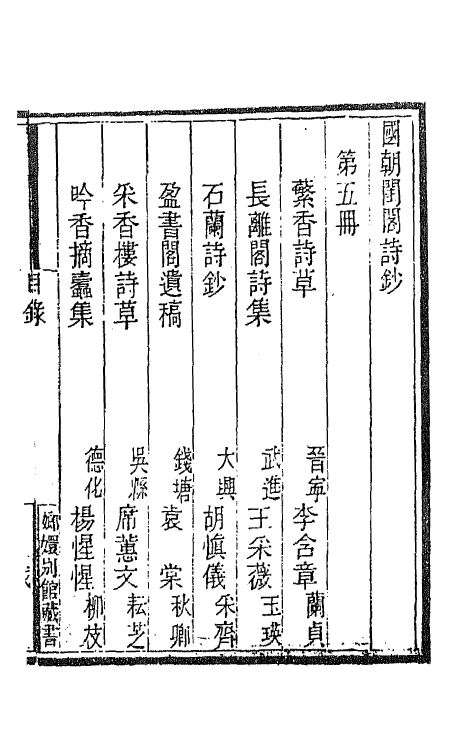 國朝閨閣詩鈔
第五冊
蘩香詩草 晉寧 李含章 蘭貞
長離閣詩集 武進 王采薇 玉瑛
石蘭詩鈔 大興 胡愼儀 采齊
盈書閣遺稿 錢塘 袁 棠 秋卿
采香樓詩草 吳縣 席蕙文 耘芝
吟香摘蠹集 德化 楊惺惺 柳枝
目錄
嫏嬛別館藏書